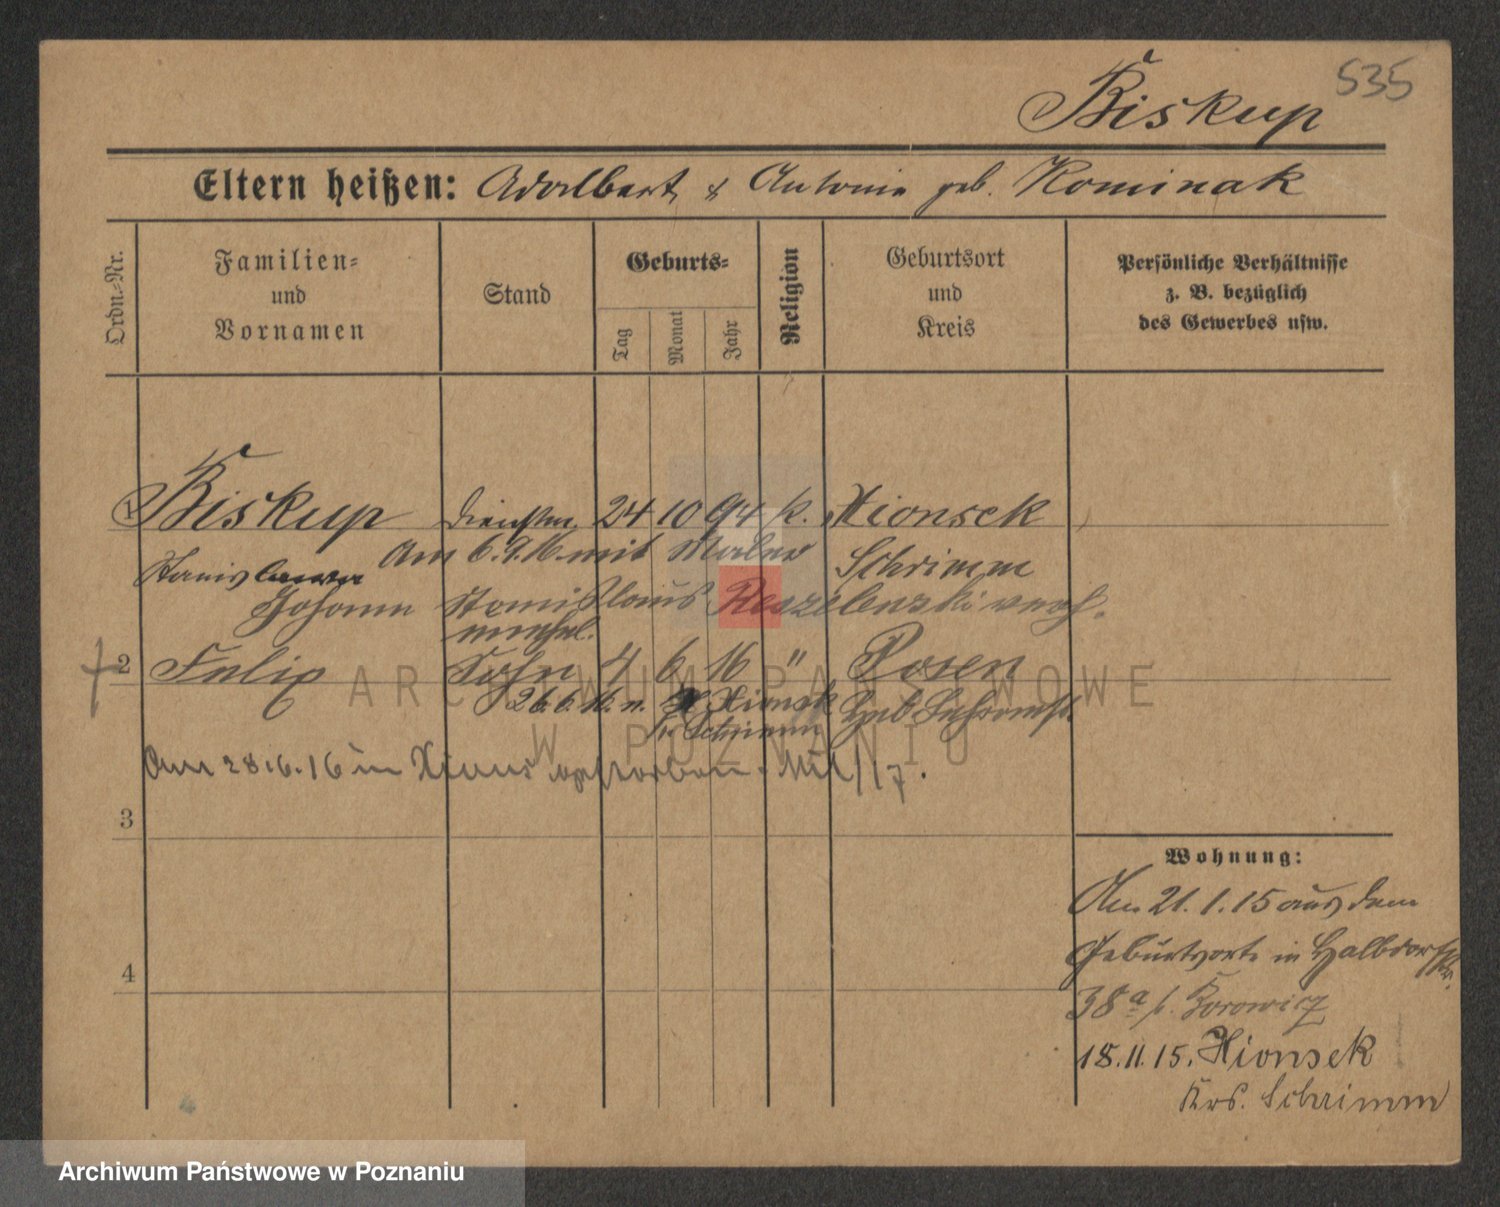 535
Biskup
Eltern heißen: Adalbert & Antonie geb. Kominak
Ordn.-Nr.
Familien-
und
Vornamen
Stand
Geburts-
Tag
Monat
Jahr
Religion
Geburtsort
und
Kreis
Persönliche Verhältnisse
z. B. bezüglich
des Gewerbes usw.
1 Biskup Dienstm. 24 10 94 k. Xionsek
Am 6.9.16 mit Maler Schrimm
Stanislawa
Johann Stanislaus verh.
unehel.
2 Felix Sohn 4 6 16 " Posen
26.6.16 n. Xionsek
Kr. Schrimm
Am 28.6.16 in Xions verstorben.
3
4
Wohnung:
Am 21.1.15 aus dem
Geburtsorte in Halbdorfstr.
38a b. Borowicz
18.11.15. Xionsek
Krs. Schrimm
ARCHIWUM PAŃSTWOWE
W POZNANIU
Archiwum Państwowe w Poznaniu